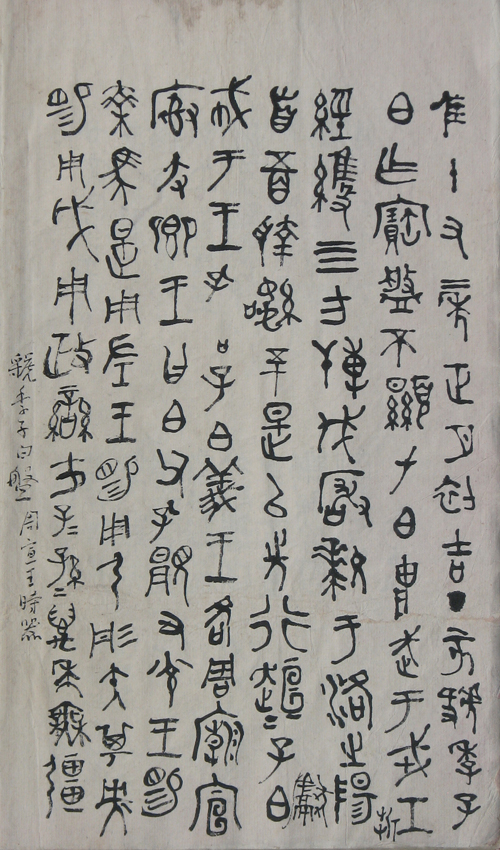 隹十又二年正月初吉丁亥虢季子
白乍寶盤不顯子白壯武于戎工
經維四方搏伐玁狁于洛之陽折
首五百執訊五十是以先行趄=子白獻
戒于王=孔加子白義王各周廟宣
廚爰卿王曰白父孔覭又光王賜
乘馬是用左王賜用弓彤矢其央
賜用戉用政蠻方子=孫=萬年無疆
虢季子白盤 周宣王時器